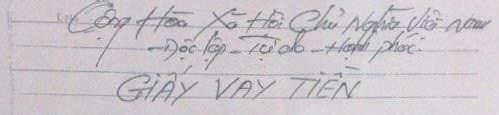 Cộng Hòa Xã Hội Chủ Nghĩa Việt Nam
-Độc lập - Tự do - Hạnh phúc.
GIẤY VAY TIỀN